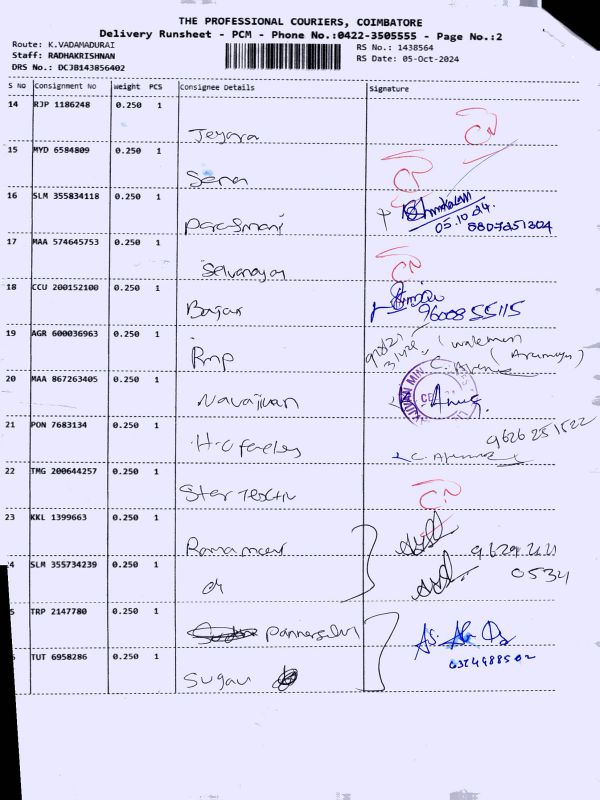 THE PROFESSIONAL COURIERS, COIMBATORE
Delivery Runsheet - PCM - Phone No.:0422-3505555 - Page No.:2
Route: K.VADAMADURAI RS No.: 1438564
Staff: RADHAKRISHNAN RS Date: 05-Oct-2024
DRS No.: DCJB143856402
S No Consignment No Weight PCS Consignee Details Signature
14 RJP 1186248 0.250 1
Jeyara CN
15 MYD 6584809 0.250 1
Sena CN
16 SLM 355834118 0.250 1
Parasmani 05.10.24.
8807251304
17 MAA 574645753 0.250 1
Selvanayag CN
18 CCU 200152100 0.250 1
Bajar 9600855115
19 AGR 600036963 0.250 1
Rmp
20 MAA 867263405 0.250 1
Navajivan Anug.
21 PON 7683134 0.250 1
9626251522
22 TMG 200644257 0.250 1
Star CN
23 KKL 1399663 0.250 1
SLM 355734239 0.250 1
0534
TRP 2147780 0.250 1
Pannerselvi
TUT 6958286 0.250 1
Sugau